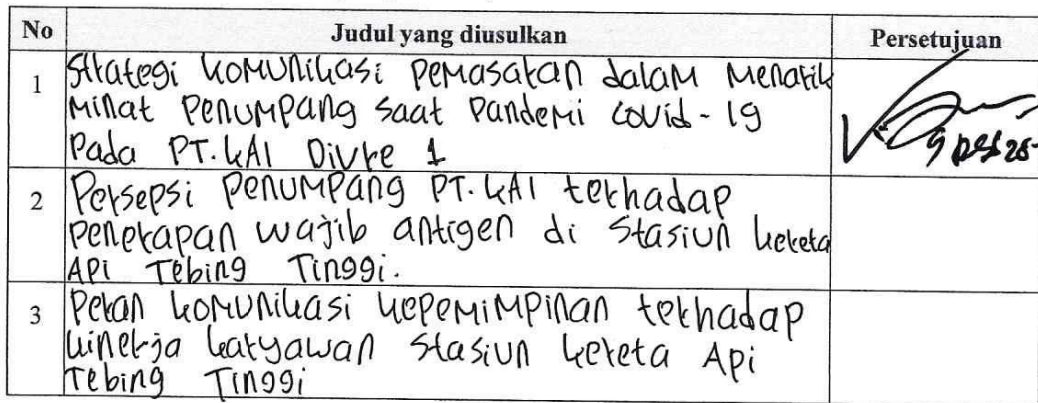 No Judul yang diusulkan Persetujuan
1 Strategi komunikasi pemasaran dalam menarik
minat penumpang saat pandemi covid-19
Pada PT. KAI Divre 1
2 Persepsi penumpang PT. KAI terhadap
penerapan wajib antigen di Stasiun kereta
Api Tebing Tinggi.
3 Peran komunikasi kepemimpinan terhadap
kinerja karyawan Stasiun kereta Api
Tebing Tinggi